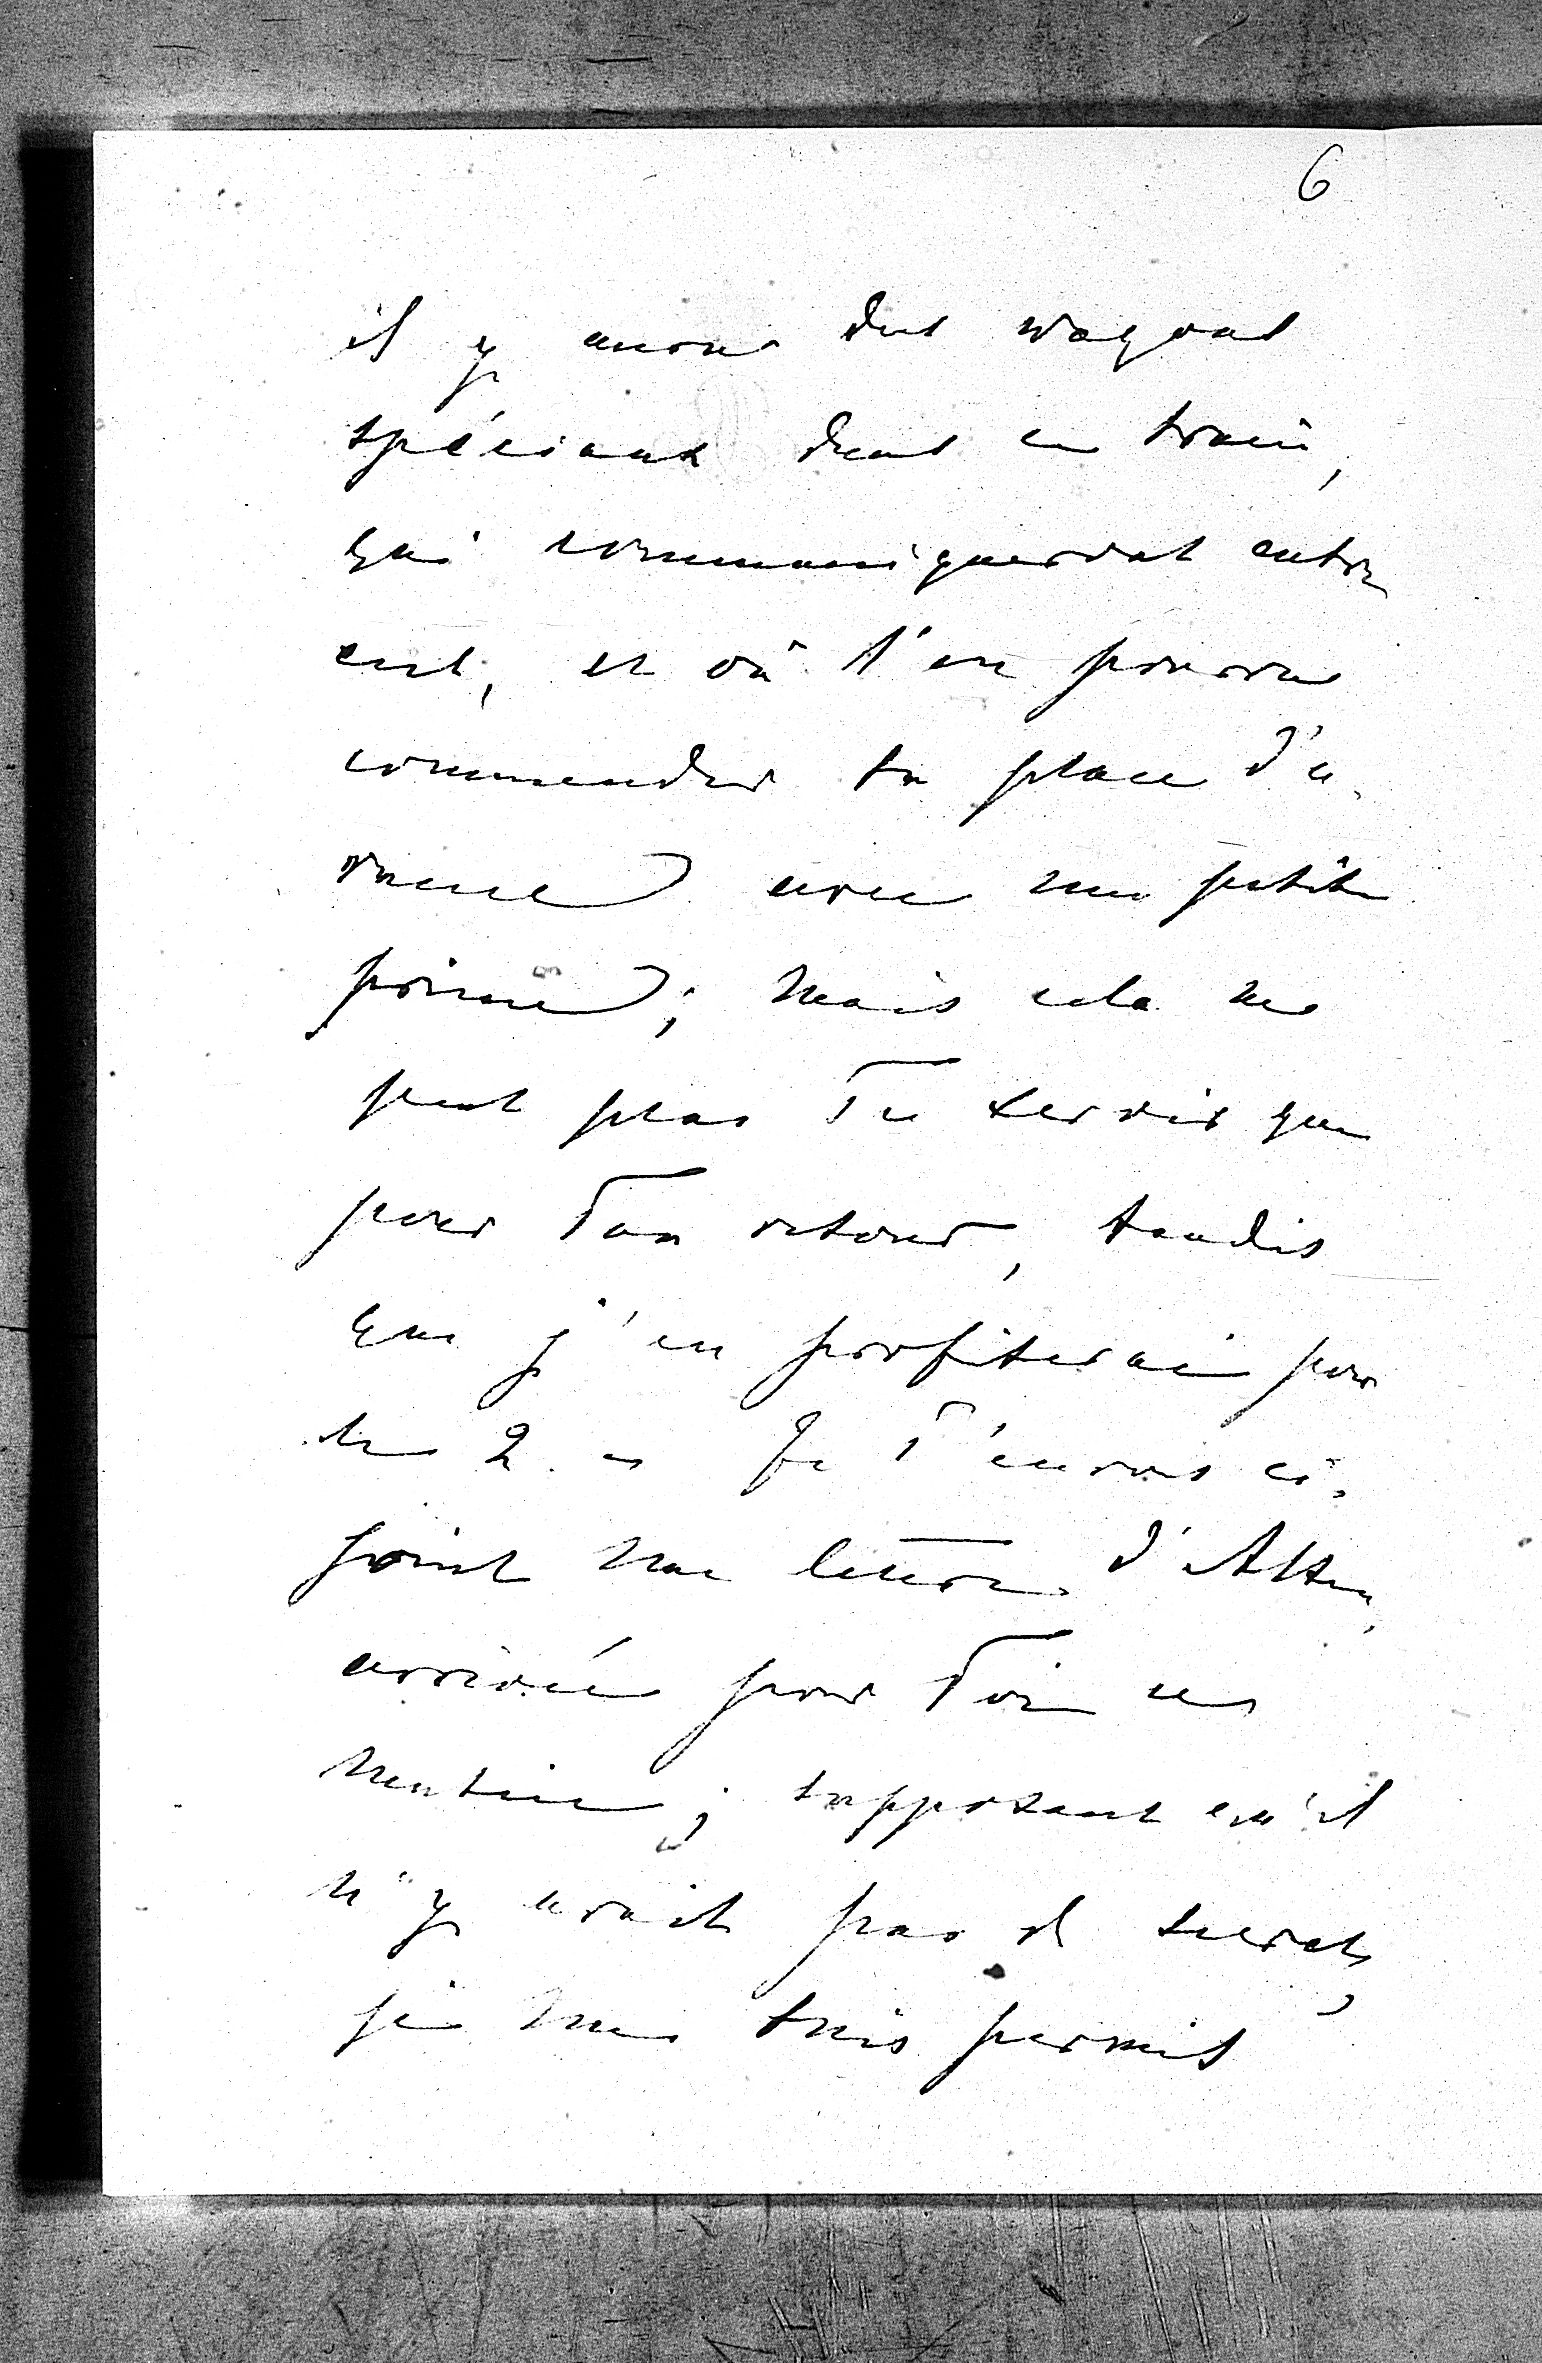 6
il y aura des wagons
spéciaux dans ce train,
qui communiqueront entre
eux, et où l'on pourra
commander sa place d'a-
vance avec une petite
prime; mais cela ne
peut plus Te servir que
pour Ton retour, tandis
que j'en profiterai pour
les 2. Je T'envois ci-
joint une lettre d'Alten,
arrivée pour Toi ce
matin; supposant qu'il
n'y avait pas de secrets,
je me suis permis